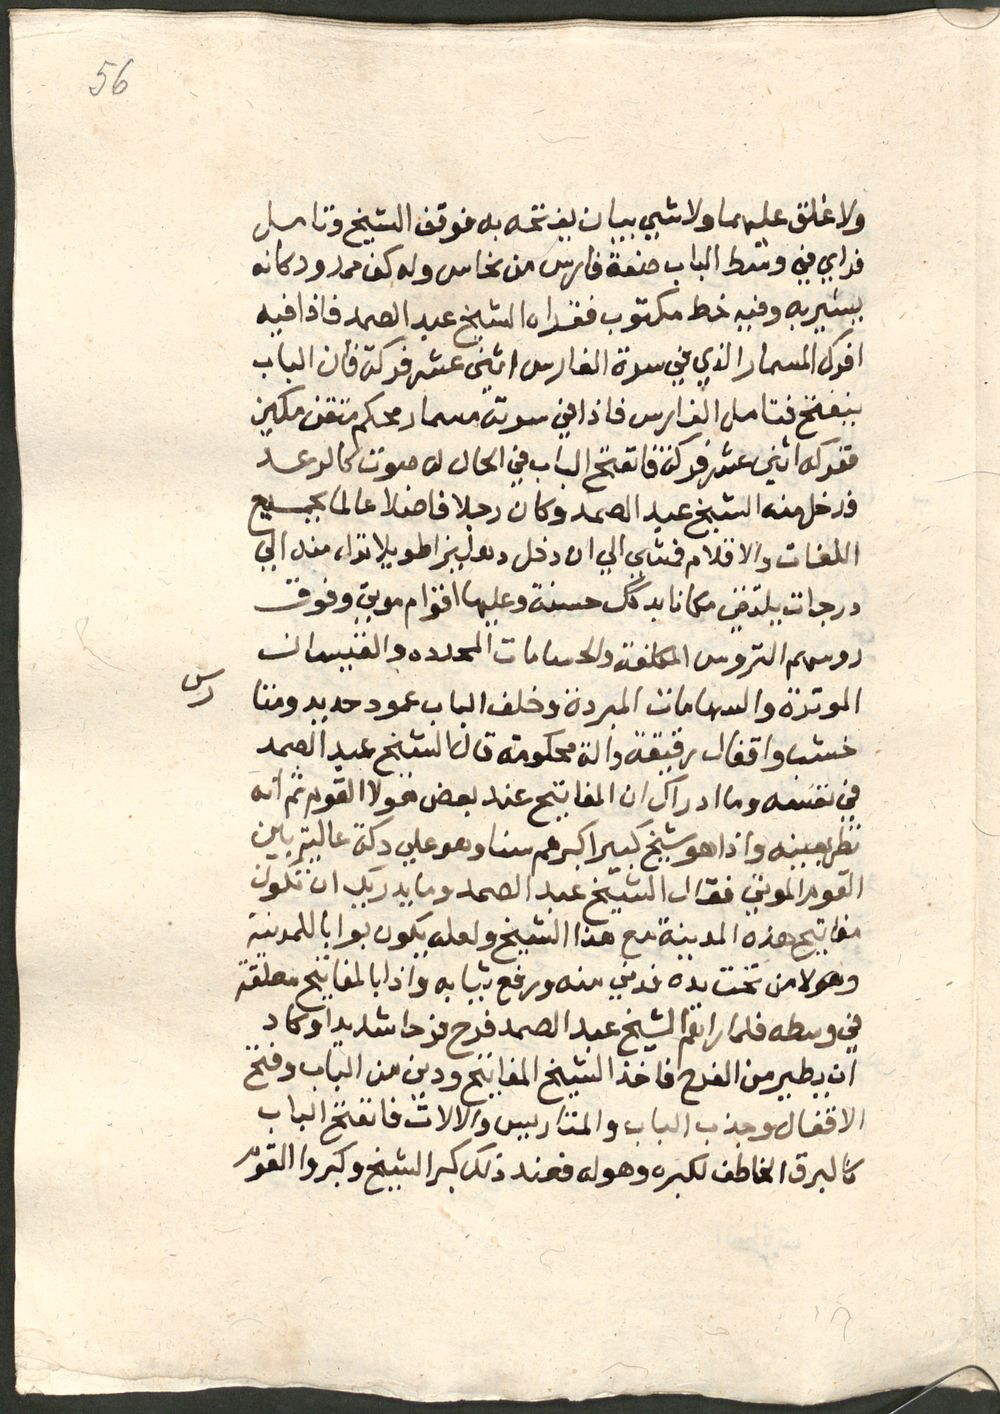 56
ولا غلق عليهما ولا شيي ببان يفتحه به فوقف الشيخ وتامل
فراي في وسط الباب صنعة فارس من نحاس وله كف ممدود كانه
يشير به وفيه خط مكتوب فقراه الشيخ عبد الصمد فاذا فيه
افرك المسمار الذي في سرة الفارس اثنى عشر فركة فان الباب
ينفتح فتامل الفارس فاذا في سرته مسمار محكم متقن مكين
ففركه اثني عشر فركة فانفتح الباب في الحال له صوت كالرعد
فدخل منه الشيخ عبد الصمد وكان رجلا فاضلا عالما بجميع
اللغات والاقلام فمشي الي ان دخل دهليزا طويلا نزل منه الي
درجات يلتقي مكانا بدكك حسنة وعليها اقوام موتي وفوق
روسهم التروس المكلفة والحسامات المحدده والقسي ال
الموترة والسهامات المبردة وخلف الباب عمود حديد ومتا
رس
خشب واقفال رقيقة والة محكومة قال الشيخ عبد الصمد
في نفسه وما ادراك ان المفاتيح عند بعض هولا القوم ثم انه
نظر بعينه واذا هو شيخ كبير اكبرهم سنا وهو علي دكة عالية بين
القوم الموتي فقال الشيخ عبد الصمد وما يدريك ان تكون
مفاتيح هذه المدينة مع هذا الشيخ ولعله يكون بوابا للمدينة
وهولا من تحت يده فدني منه ورفع ثيابه واذا بالمفاتيح معلقة
في وسطه فلما راهم الشيخ عبد الصمد فرح فرحا شديدا وكاد
ان يطير من الفرح فاخذ الشيخ المفاتيح ودني من الباب وفتح
الاقفال وجذب الباب والمتاريس والالات فانفتح الباب
كالبرق الخاطف لكبره وهوله فعند ذلك كبر الشيخ وكبروا القوم